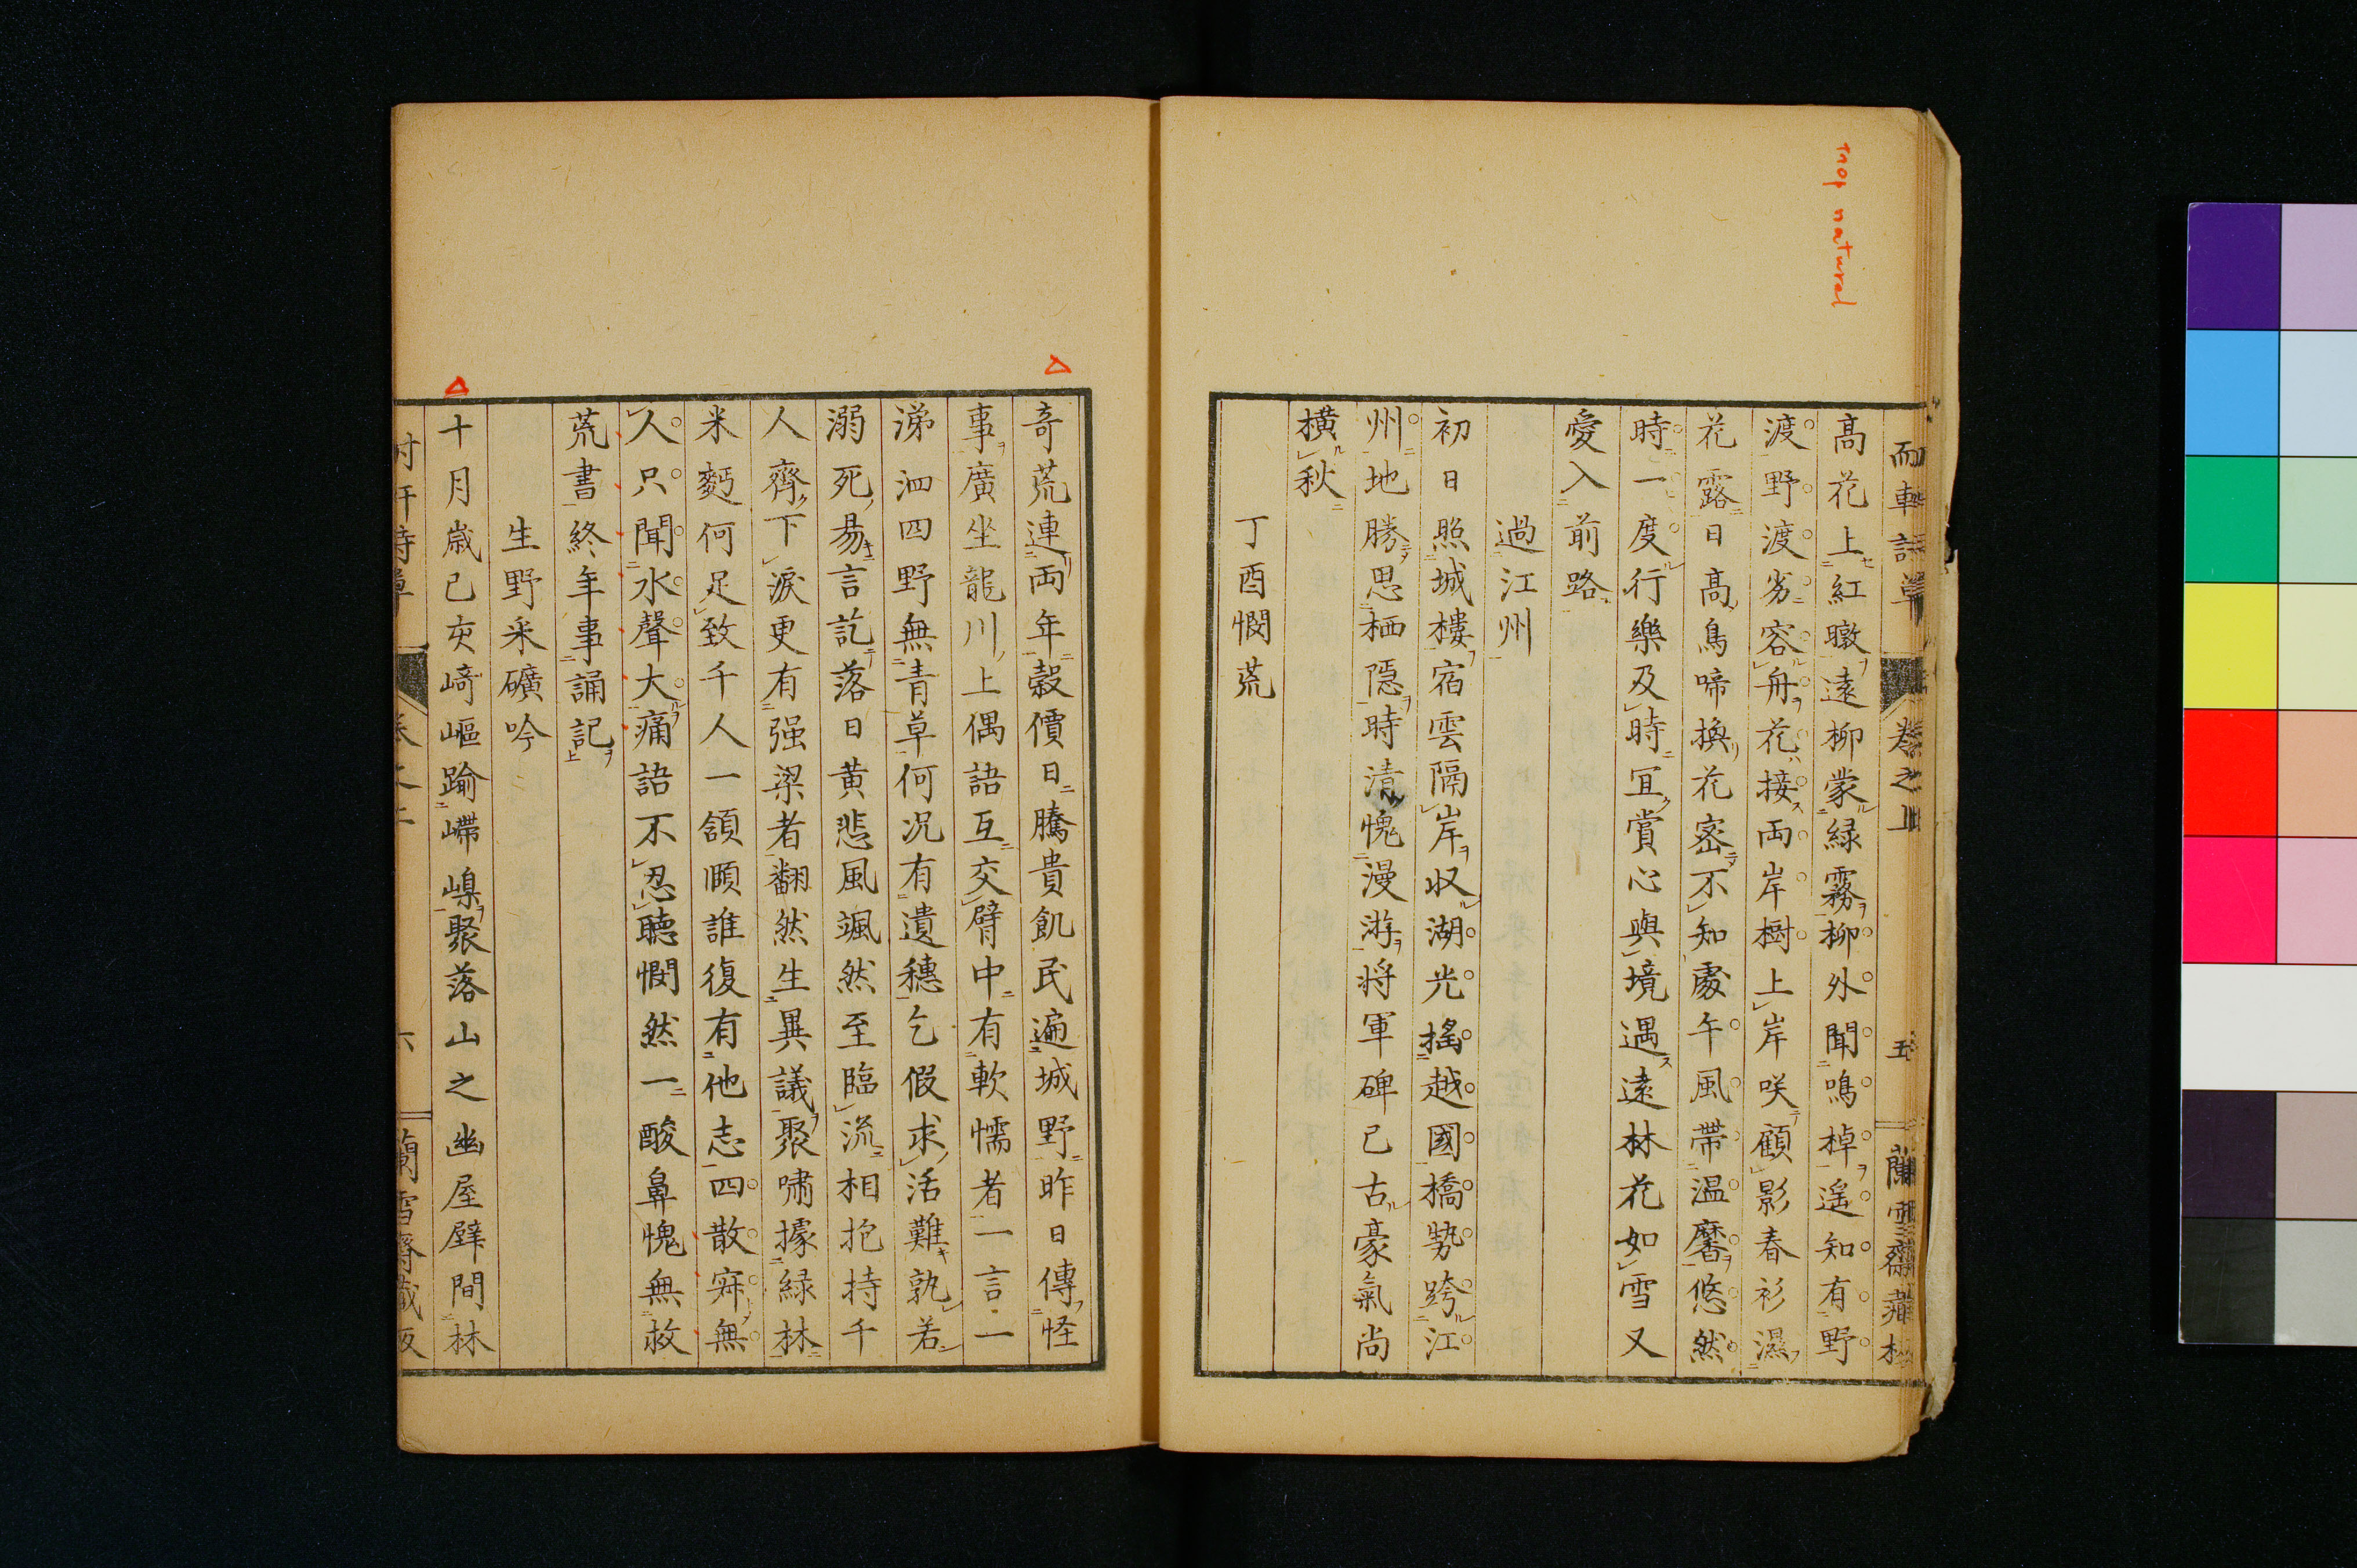 而軒詩草 卷之上 五
高花上紅暾遠柳蒙緑霧柳外聞鳴棹遥知有野
渡野渡劣容舟花接両岸樹上岸咲顧影春衫濕
花露日高鳥啼換花密不知處午風帶温馨悠然
時一度行樂及時宜賞心與境遇遠林花如雪又
愛入前路
過江州
初日照城樓宿雲隔岸収湖光揺越國橋勢跨江
州地勝思栖隠時清愧漫游将軍碑已古豪氣尚
横秋
丁酉憫荒
奇荒連両年穀價日騰貴飢民遍城野昨日傳怪
事廣坐龍川上偶語互交臂中有軟懦者一言一
涕泗四野無青草何況有遺穗乞假求活難孰若
溺死易言訖落日黄悲風颯然至臨流相抱持千
人齊下淚更有强梁者翻然生異議聚嘯據緑林
米麪何足致千人一頷順誰復有他志四散寂無
人只聞水聲大痛語不忍聽憫然一酸鼻愧無救
荒書終年事誦記
生野采礦吟
十月歳已亥崎嶇踰嶵嵲聚落山之幽屋壁間林